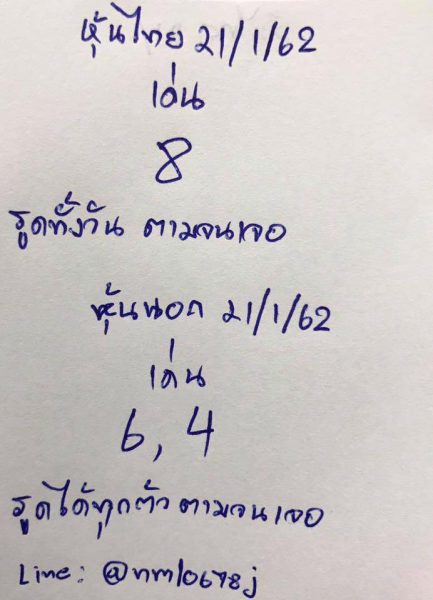 หุ้นไทย 21/1/62
เด่น
8
รูดทั้งวัน ตามจนเจอ
หุ้นนอก 21/1/62
เด่น
6, 4
รูดได้ทุกตัว ตามจนเจอ
Line: